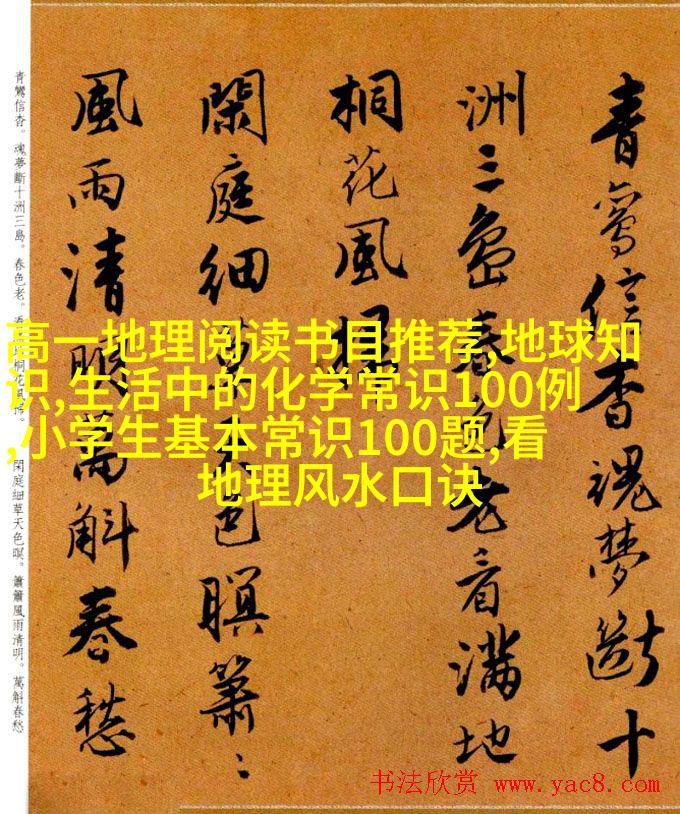 青鸞信杳魂夢斷十
洲三島春色老看滿地
桐花風掃
閑庭細草天色暝簫〻
風雨清明萬斛春愁
青鸞信杳。魂夢斷十洲三島。春色老。看桐花風掃。閑庭細草天色暝。簫簫風雨清明。萬斛春愁
高一地理阅读书目推荐,地球知
识,生活中的化学常识100例
,小学生基本常识100题,看
地理风水口诀
书法欣赏 www.yac8.com